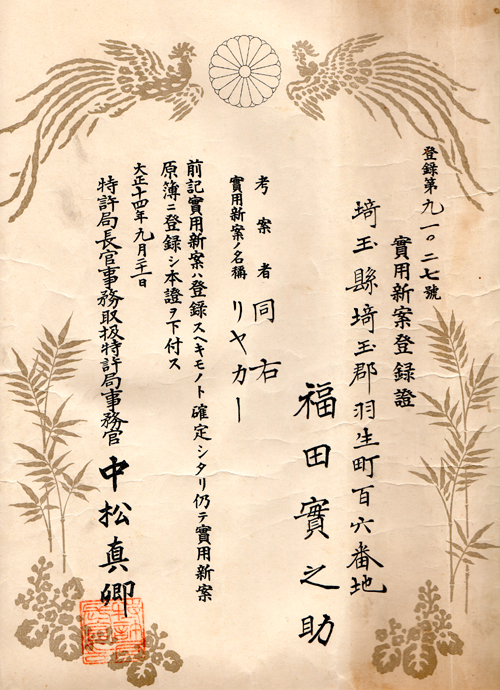 登録第九一〇二七號
實用新案登録證
埼玉縣埼玉郡羽生町百六番地
福田實之助
考案者 同右
實用新案ノ名稱 リヤカー
前記實用新案ハ登録スヘキモノト確定シタリ仍テ實用新案
原簿ニ登録シ本證ヲ下付ス
大正十四年九月二十一日
特許局長官事務取扱特許局事務官 中松真卿